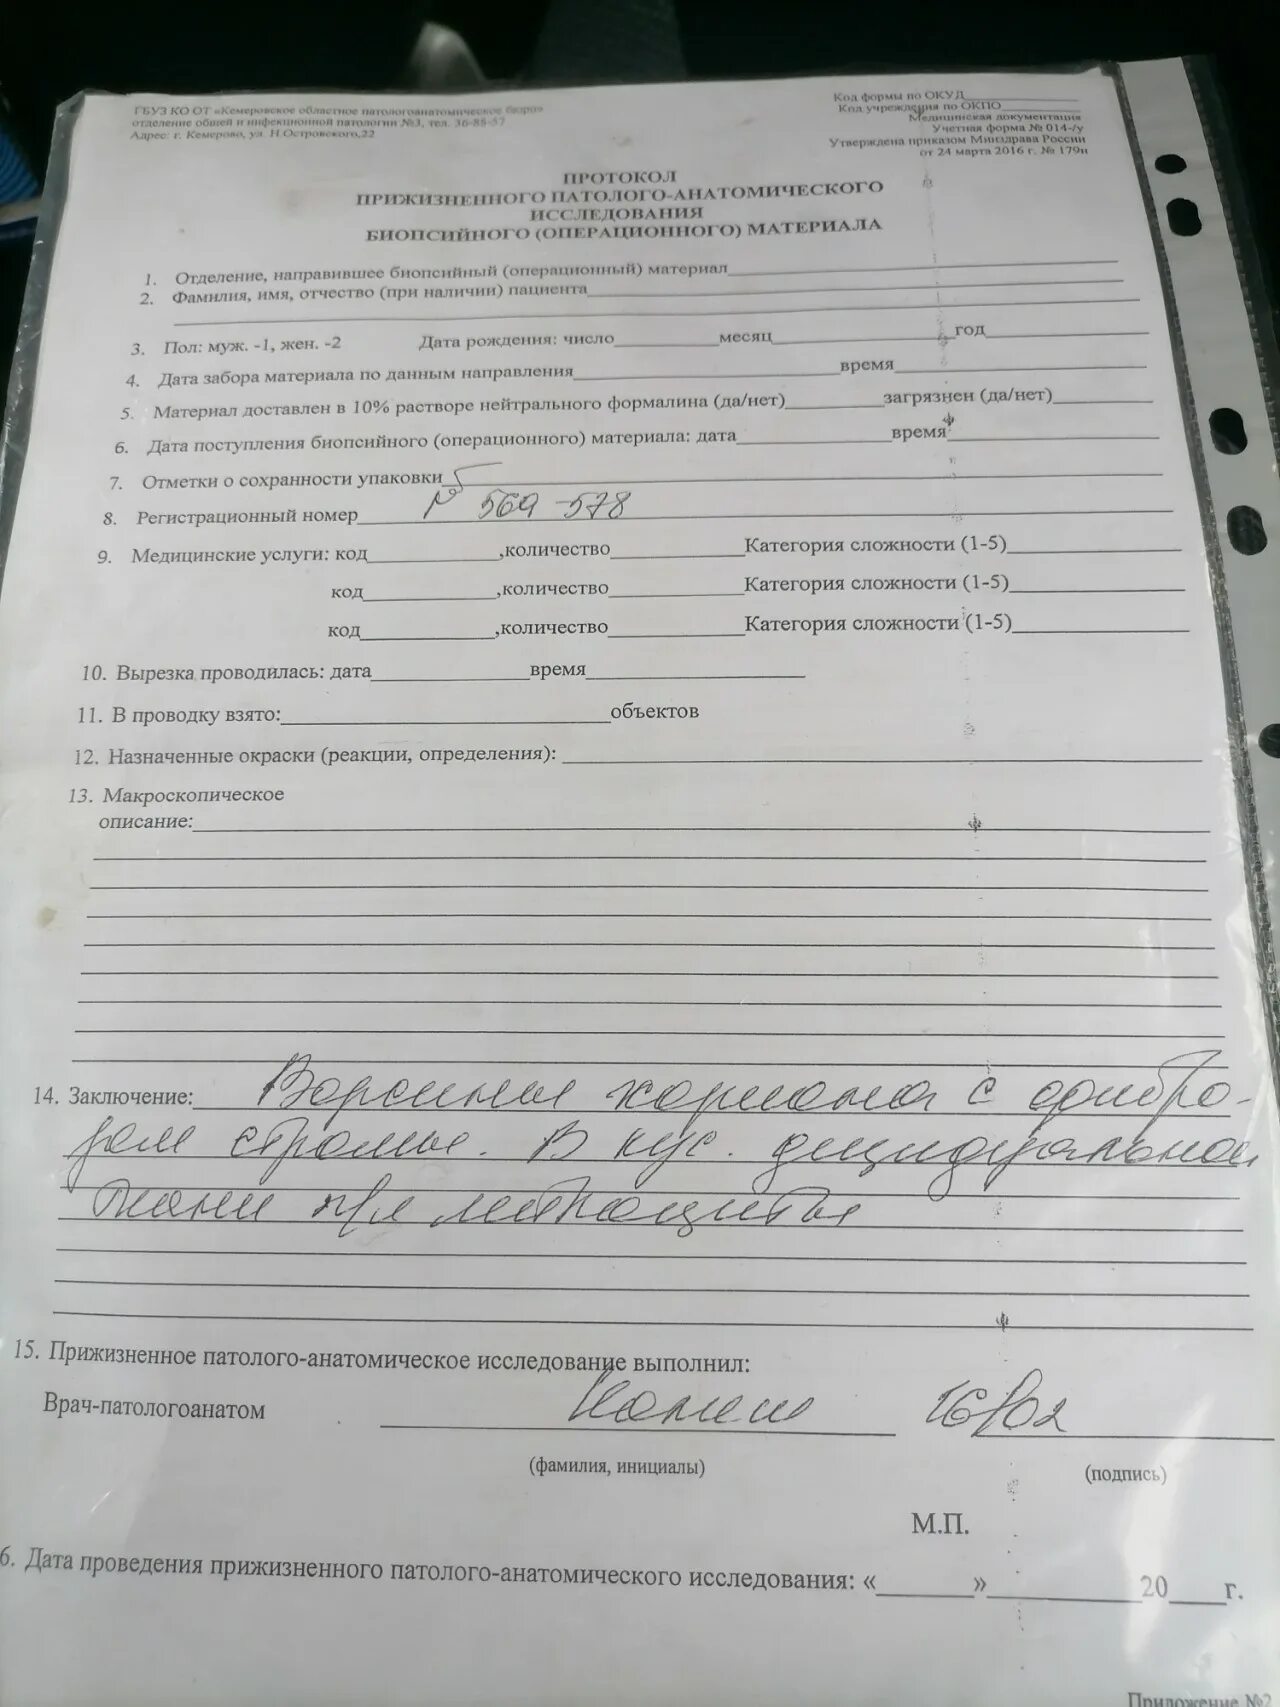 ГБУЗ КО ОТ «Кемеровское областное патологоанатомическое бюро»
отделение общей и инфекционной патологии №3, тел. 36-85-57
Адрес: г. Кемерово, ул. Н Островского,22
Код формы по ОКУД
Код учреждения по ОКПО
Медицинская документация
Учетная форма № 014-/у
Утверждена приказом Минздрава России
от 24 марта 2016 г. № 179н
ПРОТОКОЛ
ПРИЖИЗНЕННОГО ПАТОЛОГО-АНАТОМИЧЕСКОГО
ИССЛЕДОВАНИЯ
БИОПСИЙНОГО (ОПЕРАЦИОННОГО) МАТЕРИАЛА
1. Отделение, направившее биопсийный (операционный) материал
2. Фамилия, имя, отчество (при наличии) пациента
3. Пол: муж. -1, жен. -2 Дата рождения: число месяц год
4. Дата забора материала по данным направления время
5. Материал доставлен в 10% растворе нейтрального формалина (да/нет) загрязнен (да/нет)
6. Дата поступления биопсийного (операционного) материала: дата время
7. Отметки о сохранности упаковки
8. Регистрационный номер № 569-578
9. Медицинские услуги: код ,количество Категория сложности (1-5)
код ,количество Категория сложности (1-5)
код ,количество Категория сложности (1-5)
10. Вырезка проводилась: дата время
11. В проводку взято: объектов
12. Назначенные окраски (реакции, определения):
13. Макроскопическое
описание:
14. Заключение: Ворсины хориона с фибро-
зом стромы. В кус. децидуальной
ткани п/я лейкоциты
15. Прижизненное патолого-анатомическое исследование выполнил:
Врач-патологоанатом 16/02
(фамилия, инициалы) (подпись)
М.П.
6. Дата проведения прижизненного патолого-анатомического исследования: « » 20 г.
Приложение №2